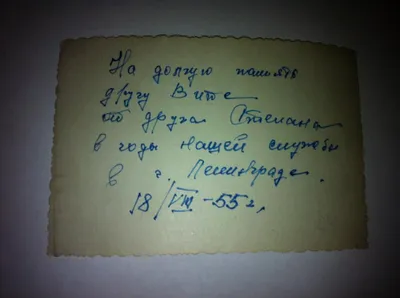 На долгую память
другу Вите
от друга Степана
в годы нашей службы
в г. Ленинграде.
18/VIII-55г.